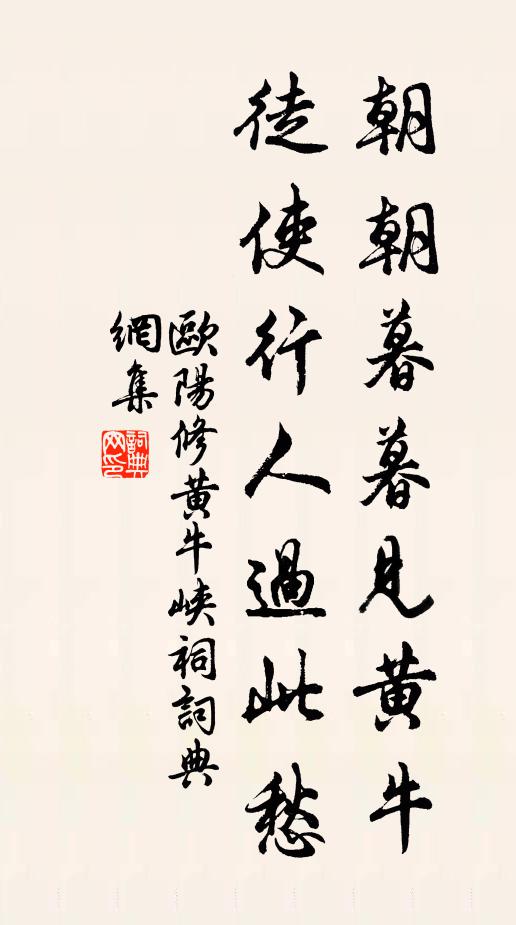 朝朝暮暮見黃牛
徒使行人過此愁
歐陽修黃牛峽祠詞典
網集
詞典網印